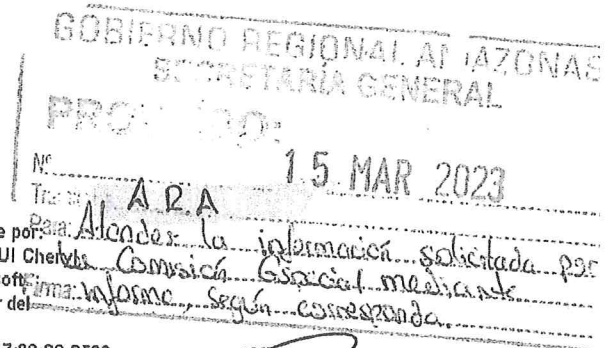 GOBIERNO REGIONAL AMAZONAS
SECRETARÍA GENERAL
N° 15 MAR 2023
A R A
e por: Para: Atender la información solicitada por
UI Che la Comisión Especial mediante
soft Firma: informe, según corresponda.
r del